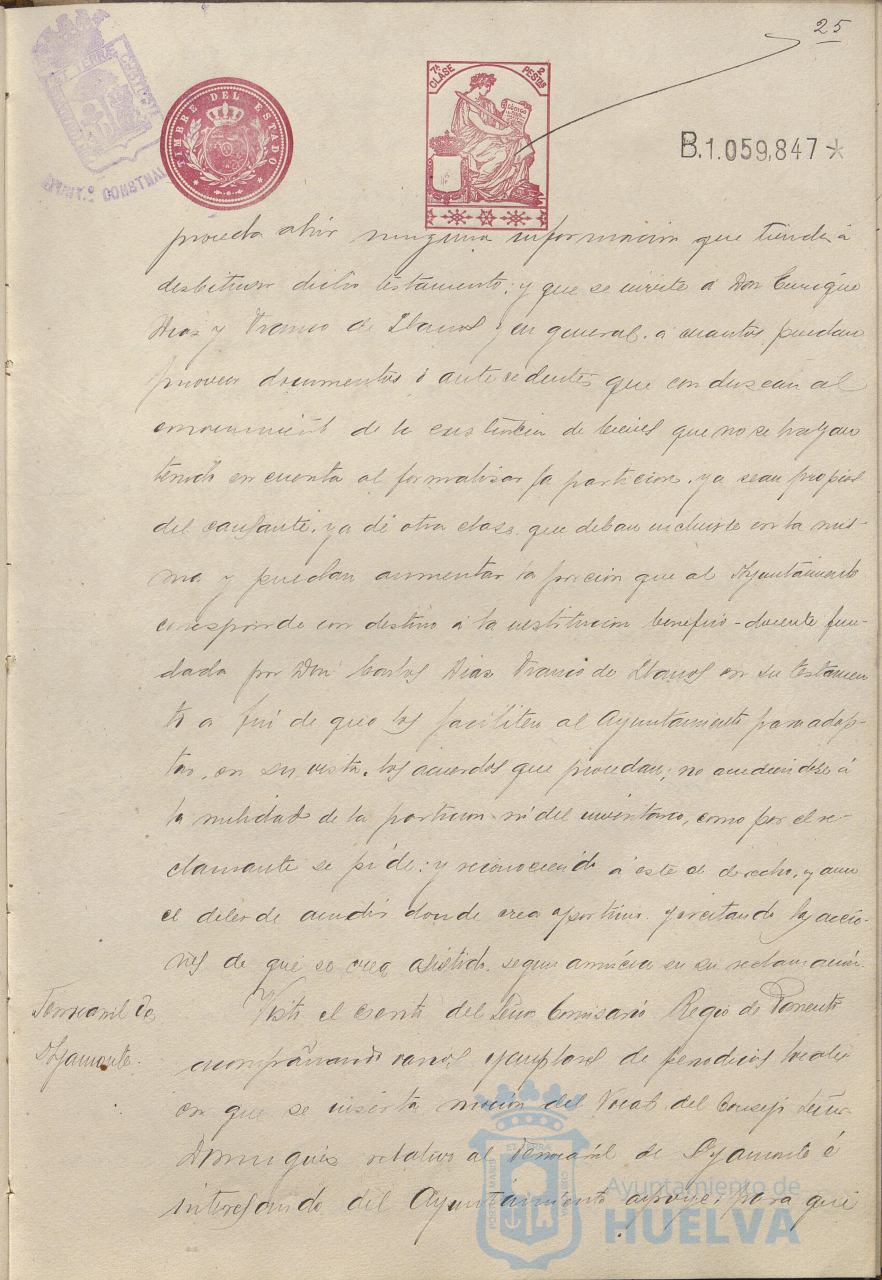 25
TIMBRE DEL ESTADO
7ª CLASE 2 PESTAS
B.1.059,847*
proceda abrir ninguna información que tienda á
desvirtuar dicho testamento; y que se invite á Don Enrique
Diaz y Franco de Llanos y en general, á cuantos puedan
proveer documentos ó antecedentes que conduzcan al
conocimiento de la existencia de bienes que no se hayan
tenido en cuenta al formalizar la particion, ya sean propios
del causante, ya de otra clase que deban incluirse en la mis-
ma y puedan aumentar la porción que al Ayuntamiento
corresponde con destino á la institucion benefico-docente fun-
dada por Don Carlos Diaz Franco de Llanos en su testamen
to a fin de que los faciliten al Ayuntamiento para adop-
tar, en su vista, los acuerdos que procedan; no accediendose á
la nulidad de la particion ni del inventario, como por el re-
clamante se pide; y reconociendo á este el derecho, y aun
el deber de acudir donde crea oportuno ejercitando las accio-
nes de que se crea asistido, segun anuncia en su reclamación.
Ferrocarril de
Ayamonte.
Visto el escrito del Señor Comisario Regio de Fomento
acompañando varios ejemplares de periodicos locales
en que se inserta moción del Vocal del Consejo Señor
Dominguez relativo al Ferrocarril de Ayamonte é
interesando del Ayuntamiento apoye, para que
Ayuntamiento de
HUELVA